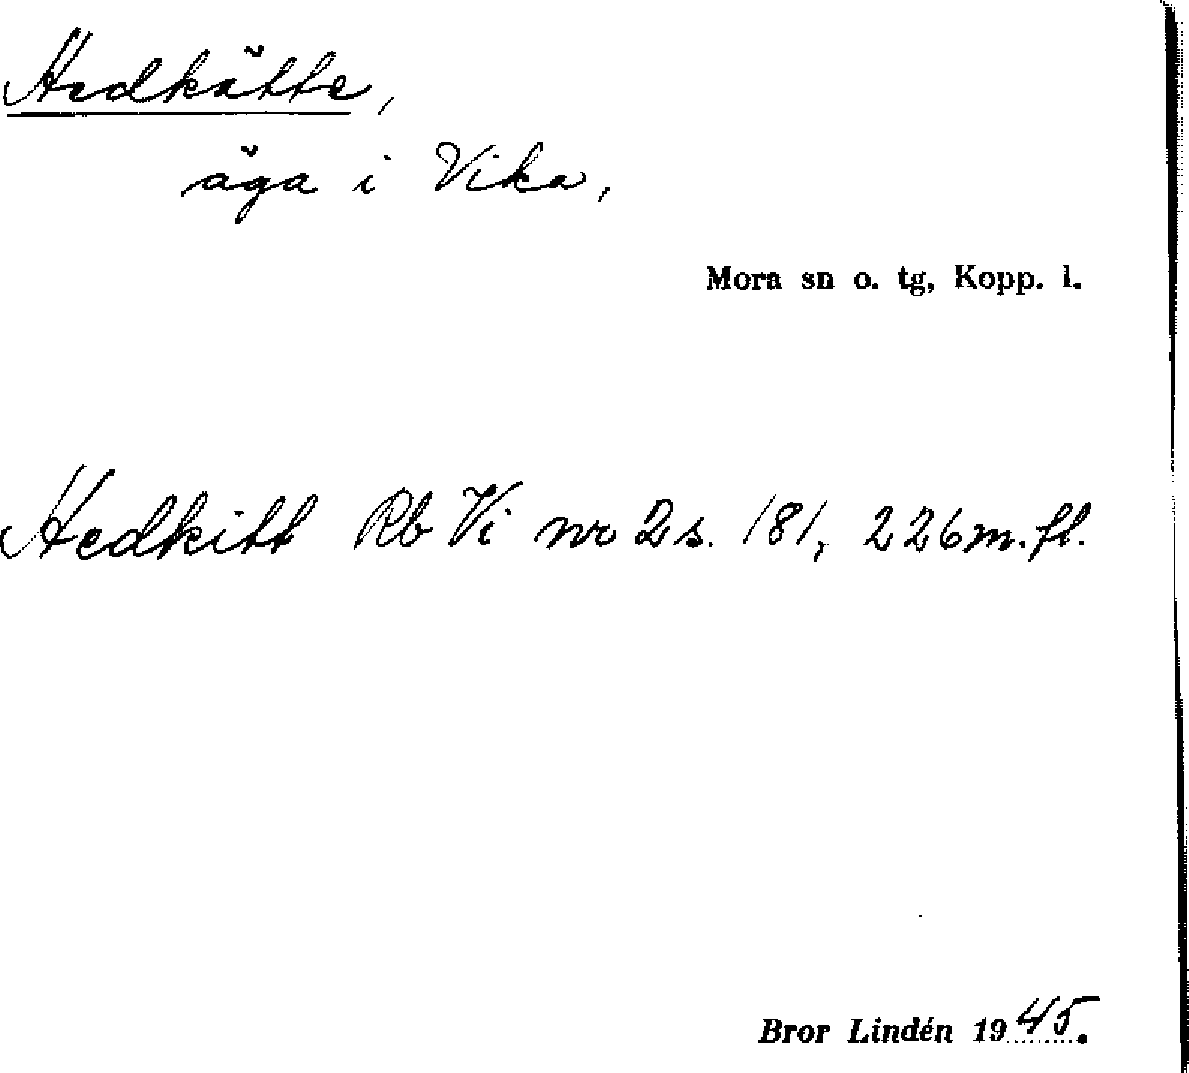 Hedkätte,
äga i Vika,
Mora sn o. tg, Kopp. l.
Hedkitt Rb Vi nr 2 s. 181, 226 m. fl.
Bror Lindén 1945.